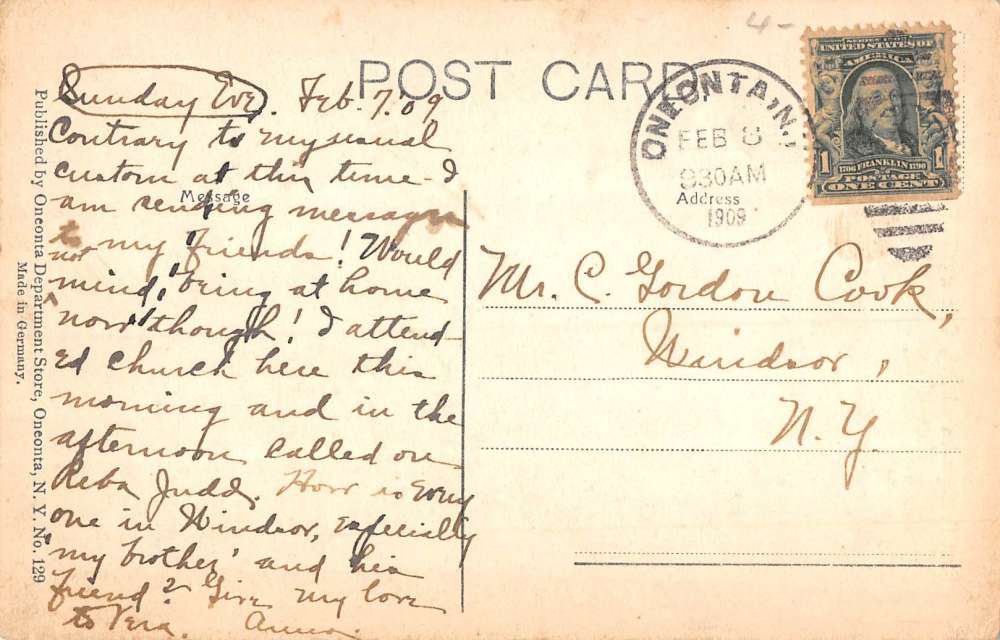 4-
POST CARD
Sunday Eve. Feb. 7. 09
Contrary to my usual
custom at this time - I
am sending messages
to my friends! Would
not
mind, being at home
now though! I attend-
ed church here this
morning and in the
afternoon called on
Reba Judd. How is every
one in Windsor, especially
"my brother" and his
friend? Give my love
to Vera. Anna.
Message
Address
ONEONTA, N.Y.
FEB 8
930AM
1909
SERIES 1902
UNITED STATES OF
AMERICA
1706 FRANKLIN 1790
1 POSTAGE 1
ONE CENT
Mr. C. Gordon Cook,
Windsor,
N. Y.
Published by Oneonta Department Store, Oneonta, N. Y. No. 129
Made in Germany.